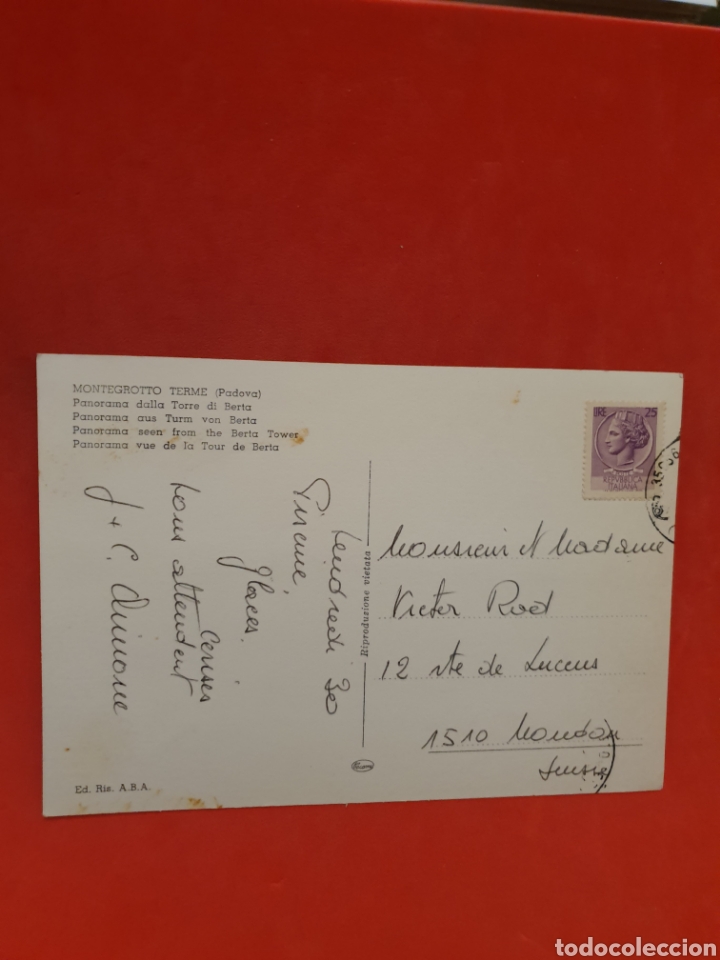 MONTEGROTTO TERME (Padova)
Panorama dalla Torre di Berta
Panorama aus Turm von Berta
Panorama seen from the Berta Tower
Panorama vue de la Tour de Berta
Vendredi 30
Piscine,
glaces,
cerises
vous attendent
J + C.
Riproduzione vietata
Ed. Ris. A.B.A.
LIRE 25
REPVBBLICA
ITALIANA
Monsieur & Madame
Victor Rod
12 rte de Lucens
1510 Moudon
Suisse
todocoleccion